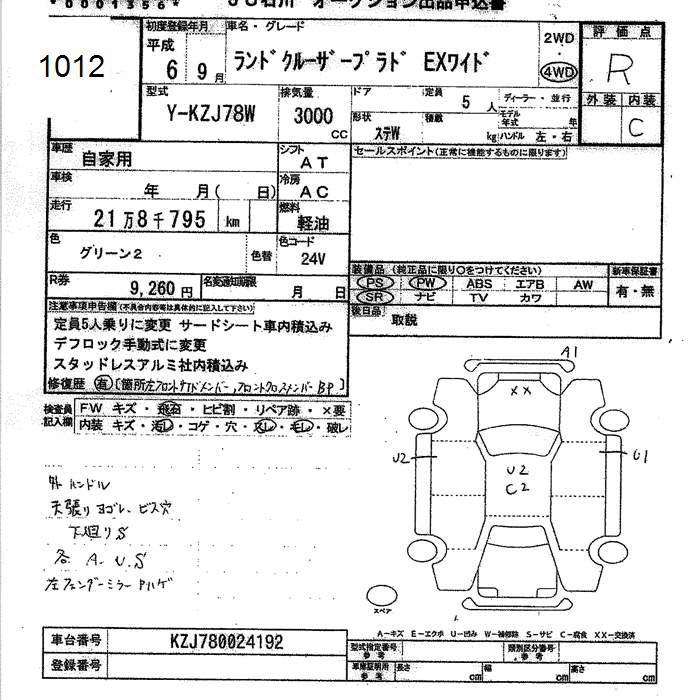 *0001356*
オークション出品申込書
1012
初度登録年月
平成
6 9 月
車名・グレード
ランドクルーザープラド EXワイド
2WD
4WD
評価点
R
型式
Y-KZJ78W
排気量
3000
CC
ドア
定員
5 人
ディーラー・並行
形状
ステW
積載
kg
モデル年式
年
ハンドル 左・右
外装 内装
C
車歴
自家用
シフト
AT
セールスポイント(正常に機能するものに限ります)
車検
年 月( 日)
冷房
AC
走行
21万8千795 km
燃料
軽油
色
グリーン2
色替
色コード
24V
R券
9,260円
名変通知期限
月 日
装備品 (純正品に限り○をつけてください)
PS PW ABS エアB AW
SR ナビ TV カワ
新車保証書
有・無
後日品
取説
注意事項申告欄(不具合内容等は具体的に記入して下さい)
定員5人乗りに変更 サードシート車内積込み
デフロック手動式に変更
スタッドレスアルミ社内積込み
修復歴 有
検査員記入欄
FW キズ・飛石・ヒビ割・リペア跡・×要
内装 キズ・汚レ・コゲ・穴・スレ・モレ・破レ
外 ハンドル
天張りヨゴレ、ビス穴
下廻りS
各 A.U.S
左フェンダーミラー Pハゲ
A1
XX
U2
U2
C2
U1
スペア
A-キズ E-エクボ U-凹み W-補修跡 S-サビ C-腐食 XX-交換済
車台番号
KZJ780024192
登録番号
型式指定番号
参考
類別区分番号
参考
車庫証明用
参考
長さ
cm
幅
cm
高さ
cm